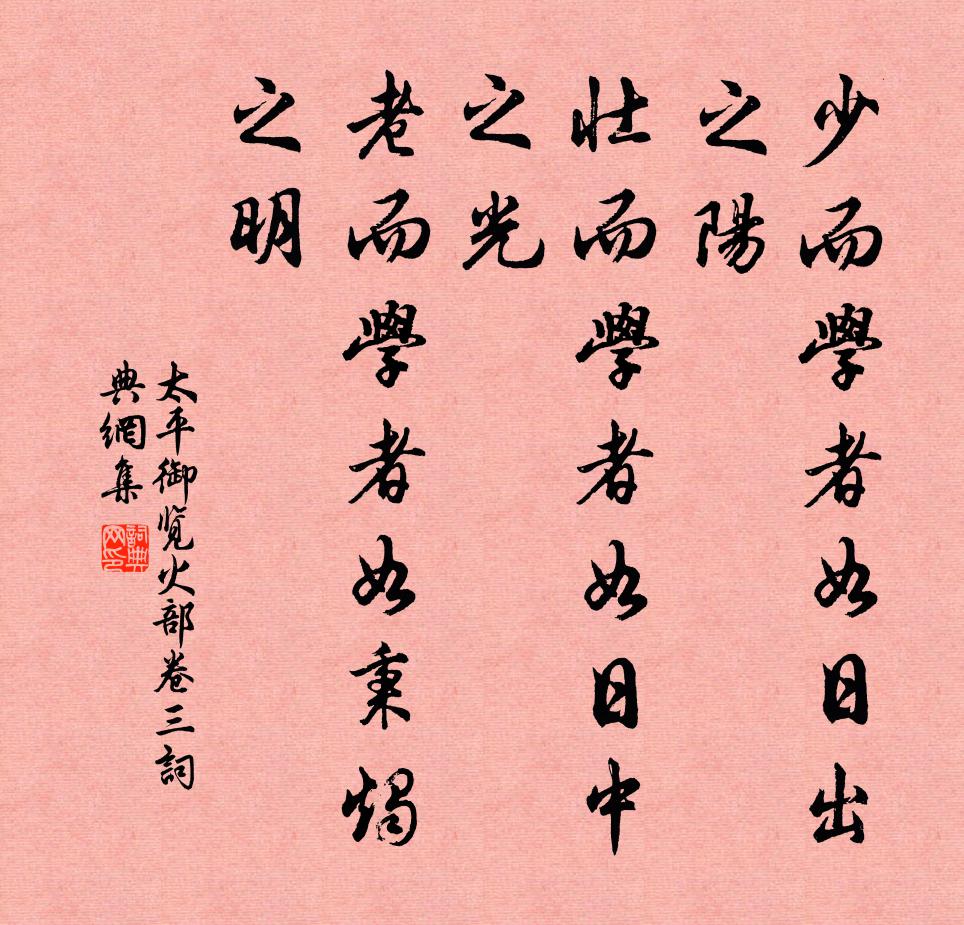 少而學者如日出
之陽
壯而學者如日中
之光
老而學者如秉燭
之明
太平御覽火部卷三詞
典網集
詞典
網印